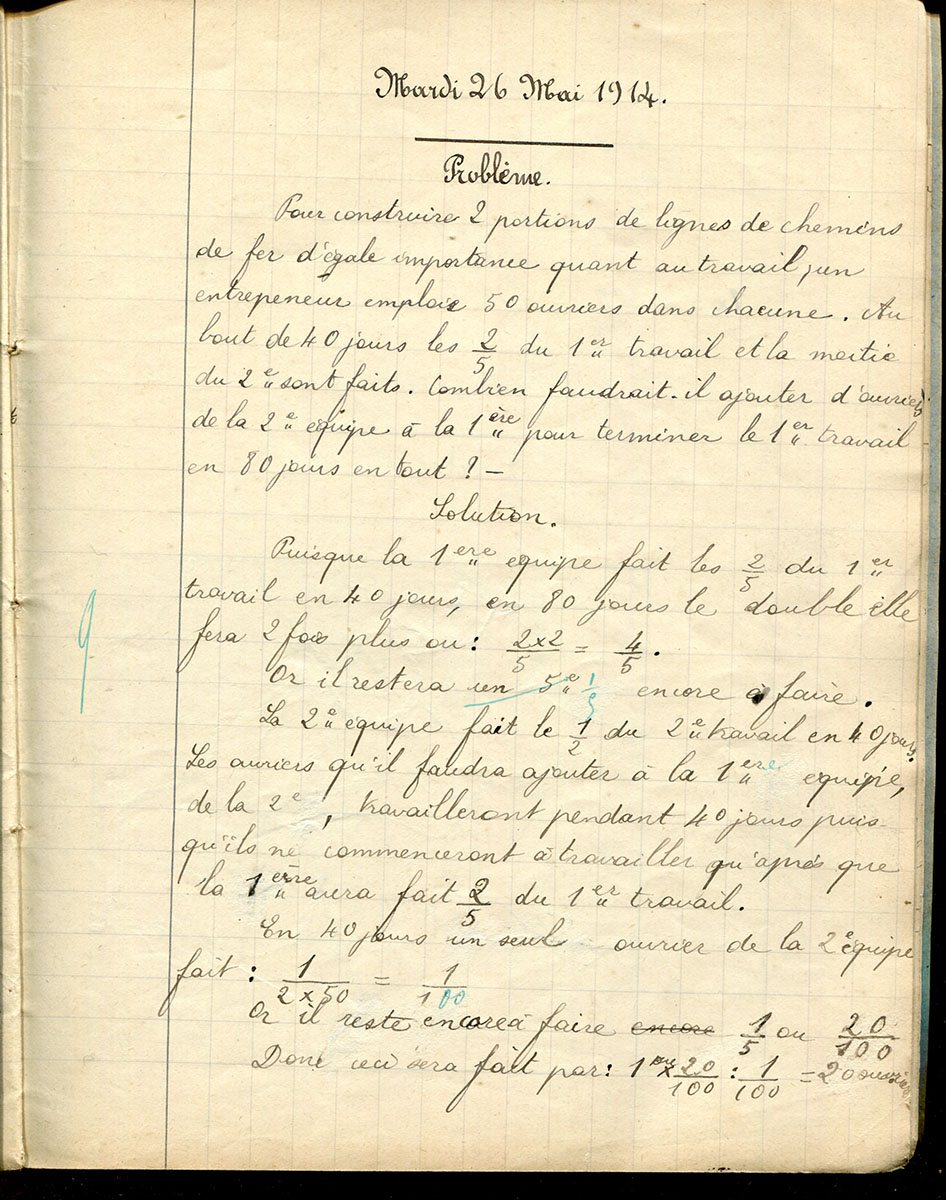 Mardi 26 Mai 1914.
Problème.
Pour construire 2 portions de lignes de chemins
de fer d'égale importance quant au travail, un
entrepeneur emploie 50 ouvriers dans chacune. Au
bout de 40 jours les 2/5 du 1er travail et la moitié
du 2e sont faits. Combien faudrait-il ajouter d'ouvriers
de la 2e equipe à la 1ère pour terminer le 1er travail
en 80 jours en tout ? —
Solution.
Puisque la 1ere equipe fait les 2/5 du 1er
travail en 40 jours, en 80 jours le double elle
fera 2 fois plus ou : 2×2/5 = 4/5.
Or il restera un 5e 1/5 encore à faire.
La 2e equipe fait le 1/2 du 2e travail en 40 jours.
Les ouvriers qu'il faudra ajouter à la 1ere equipe,
de la 2e, travailleront pendant 40 jours puis
qu'ils ne commenceront à travailler qu'après que
la 1ere aura fait 2/5 du 1er travail.
En 40 jours un seul ouvrier de la 2e équipe
fait : 1/2×50 = 1/100
Or il reste encore à faire encore 1/5 ou 20/100
Donc ceci sera fait par : 1 ou × 20/100 : 1/100 = 20 ouvriers
9